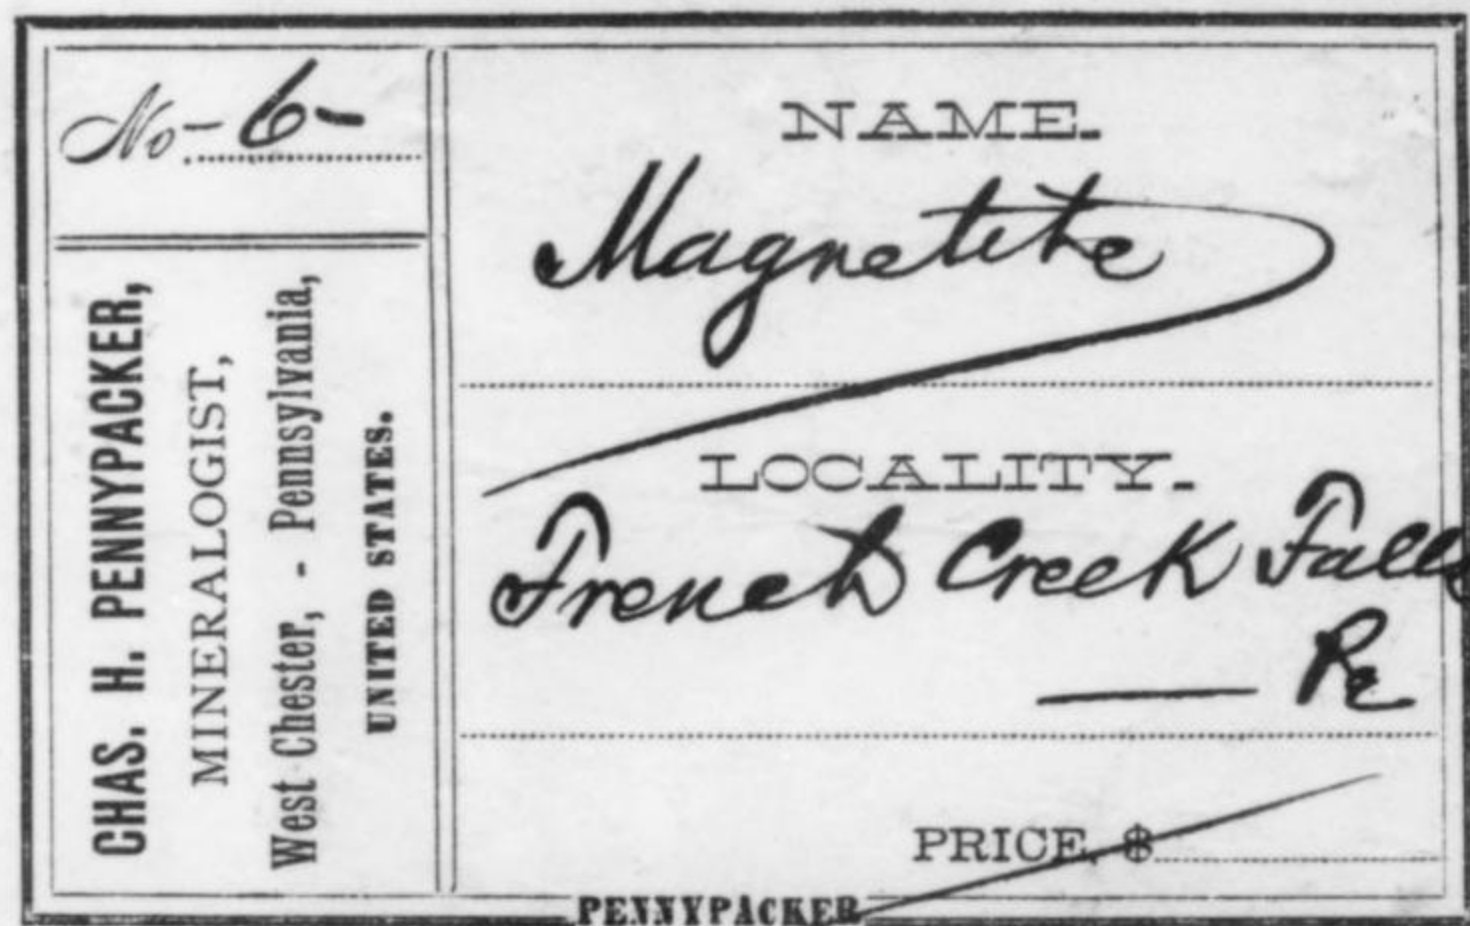 No - 6 -
CHAS. H. PENNYPACKER,
MINERALOGIST,
West Chester, - Pennsylvania,
UNITED STATES.
NAME.
Magnetite
LOCALITY.
French Creek Falls
Pa
PRICE, $
PENNYPACKER